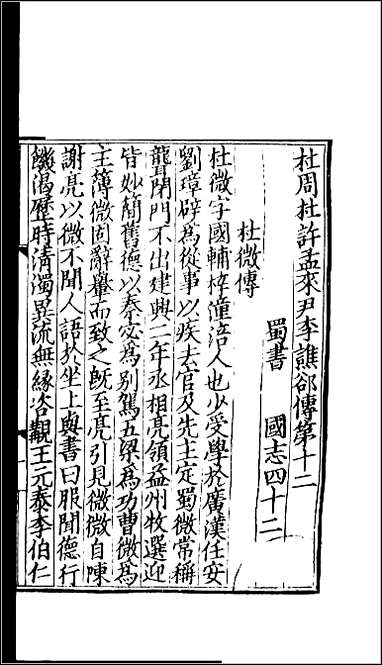 杜周杜許孟來尹李譙郤傳第十二
蜀書　國志四十二
杜微傳
杜微字國輔梓潼涪人也少受學於廣漢任安
劉璋辟為從事以疾去官及先主定蜀微常稱
聾閉門不出建興二年丞相亮領益州牧選迎
皆妙簡舊德以秦宓為別駕五梁為功曹微為
主簿微固辭轝而致之既至亮引見微微自陳
謝亮以微不聞人語於坐上與書曰服聞德行
饑渴歷時清濁異流無緣咨覯王元泰李伯仁